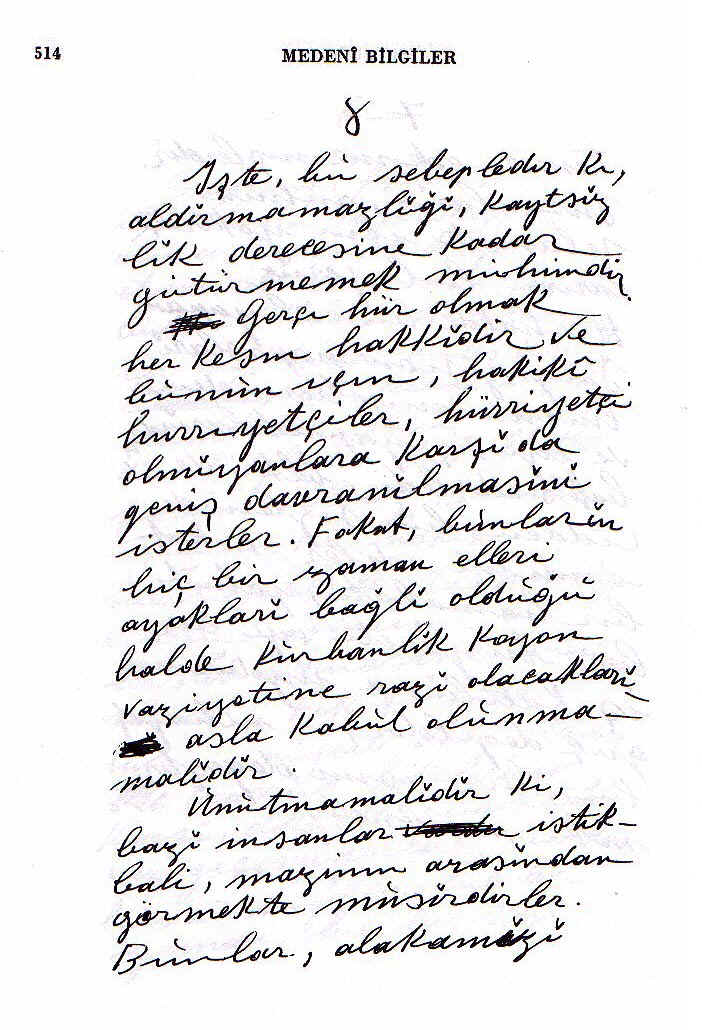 514
MEDENÎ BİLGİLER
8
İşte, bu sebepledir ki,
aldırmamazlığı, kaytsız
lık derecesine kadar
götürmemek mühimdir.
Gerçi hür olmak
her kesin hakkıdır ve
bunun için, hakikî
hürriyetçiler, hürriyetçi
olmıyanlara karşı da
geniş davranılmasını
isterler. Fakat, bunların
hiç bir zaman elleri
ayakları bağlı olduğu
halde kurbanlık koyon
vaziyetine razı olacakları
asla kabul olunma-
malıdır.
Unutmamalıdır ki,
bazı insanlar istik-
bali, mazinin arasından
görmekte müsirdirler.
Bunlar, alakamızı